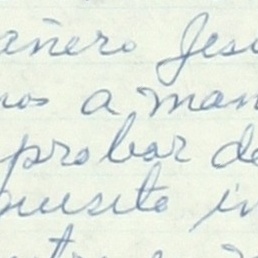 añero Jesú
nos a man
probar de
quisito in